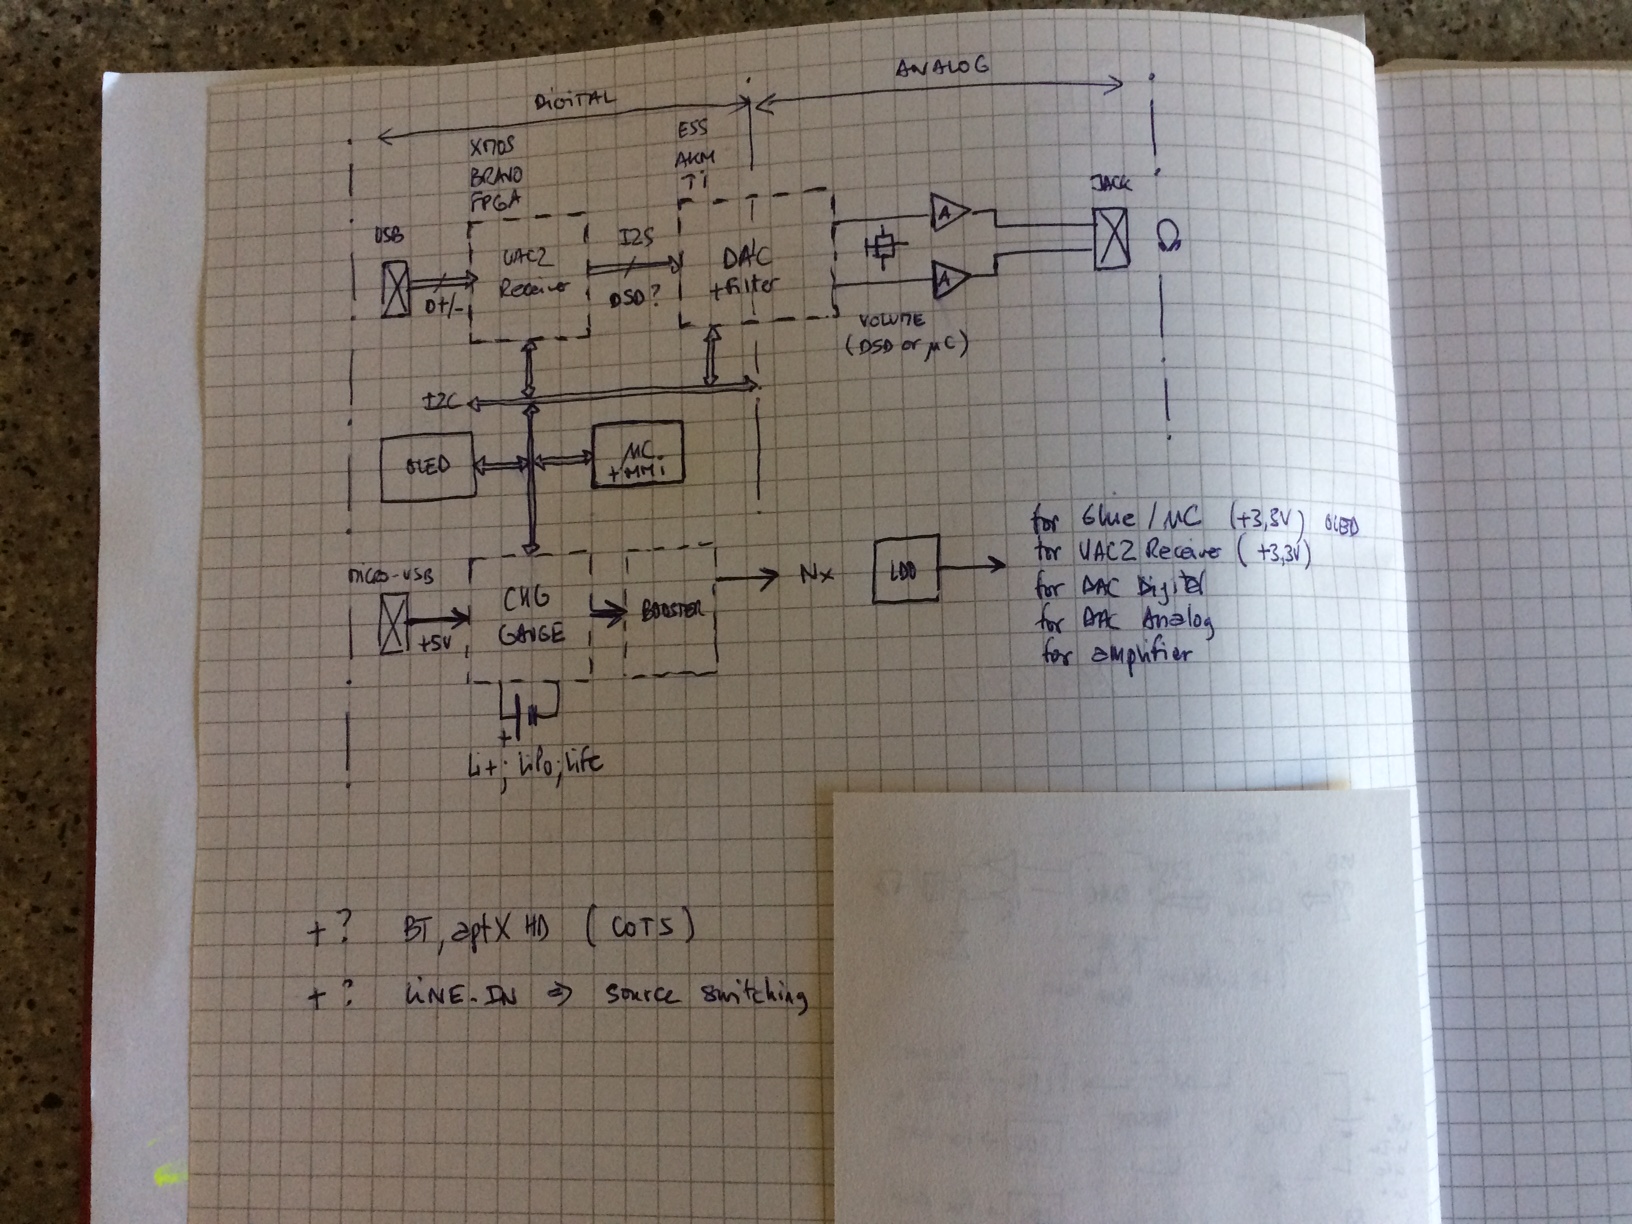 DIGITAL
ANALOG
XMOS
BRAVO
FPGA
ESS
AKM
TI
JACK
USB
D+/-
UAC2
Receiver
I2S
DSD?
DAC
+Filter
A
A
VOLUME
(DSD or µC)
I2C
OLED
µC
+MMI
MICRO-USB
+5V
CHG
GAUGE
BOOSTER
Nx
LDO
for Glue / µC (+3,3V) OLED
for UAC2 Receiver (+3,3V)
for DAC Digital
for DAC Analog
for amplifier
+
Li+; LiPo; LiFe
+? BT, aptX HD (COTS)
+? LINE-IN ⇒ source switching